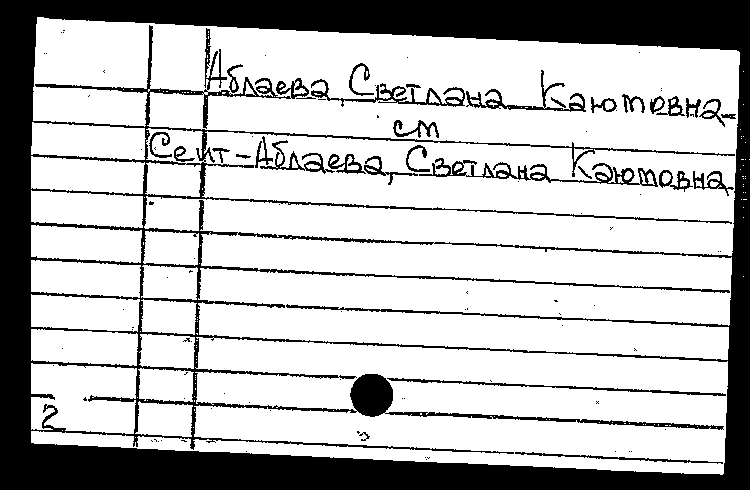 Аблаева, Светлана Каютовна-
см
Сеит-Аблаева, Светлана Каютовна
2